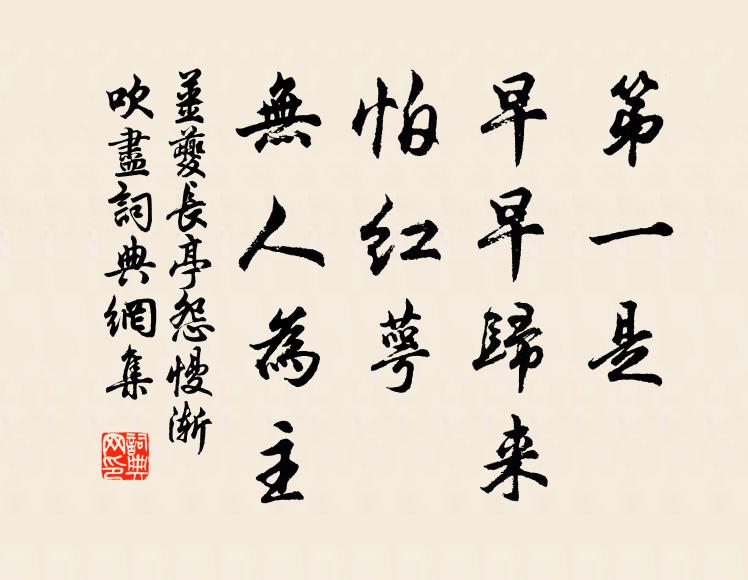 第一是
早早歸来
怕红萼
無人為主
姜夔長亭怨慢漸
吹盡詞典網集
詞典網印